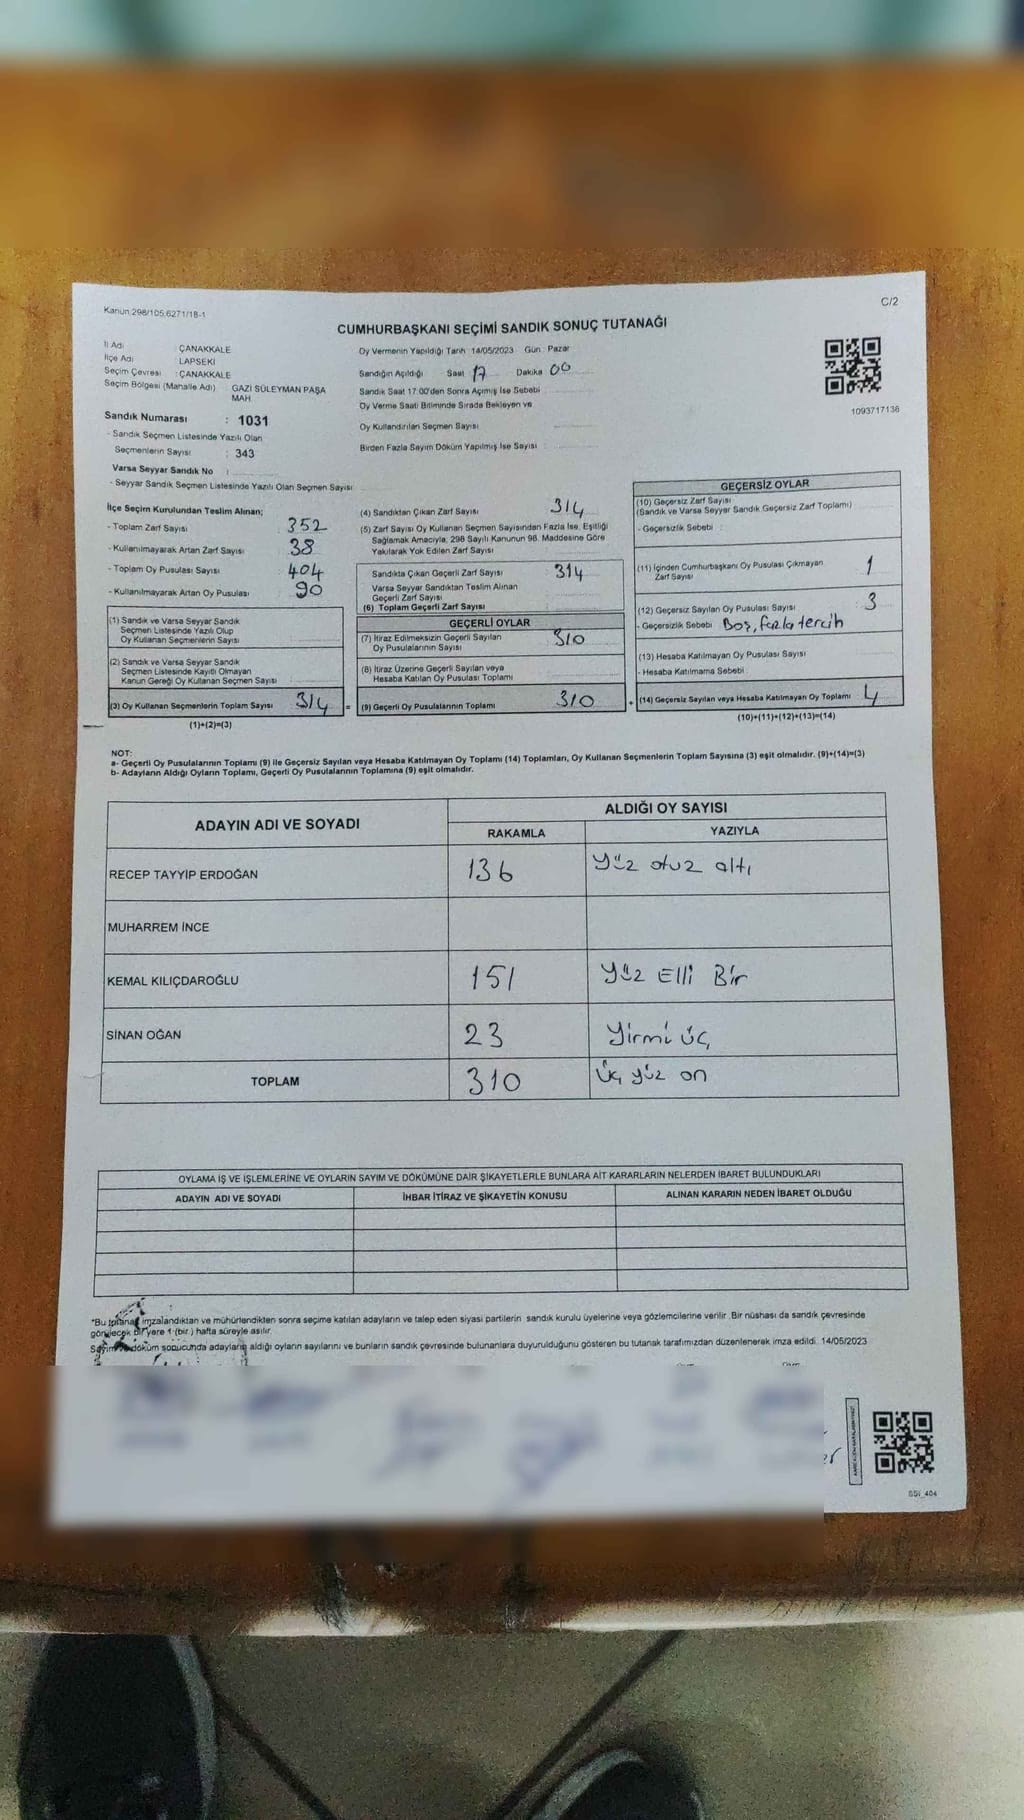 Kanun 298/105,6271/18-1
C/2
CUMHURBAŞKANI SEÇİMİ SANDIK SONUÇ TUTANAĞI
İl Adı : ÇANAKKALE
İlçe Adı : LAPSEKİ
Seçim Çevresi : ÇANAKKALE
Seçim Bölgesi (Mahalle Adı) GAZİ SÜLEYMAN PAŞA
MAH
Sandık Numarası : 1031
- Sandık Seçmen Listesinde Yazılı Olan
Seçmenlerin Sayısı : 343
Varsa Seyyar Sandık No :
- Seyyar Sandık Seçmen Listesinde Yazılı Olan Seçmen Sayısı
Oy Vermenin Yapıldığı Tarih 14/05/2023 Gün : Pazar
Sandığın Açıldığı Saat 17 Dakika 00
Sandık Saat 17:00'den Sonra Açımış İse Sebebi
Oy Verme Saati Bitiminde Sırada Bekleyen ve
Oy Kullandırılan Seçmen Sayısı
Birden Fazla Sayım Döküm Yapılmış İse Sayısı
1093717136
İlçe Seçim Kurulundan Teslim Alınan;
- Toplam Zarf Sayısı 352
- Kullanılmayarak Artan Zarf Sayısı 38
- Toplam Oy Pusulası Sayısı 404
- Kullanılmayarak Artan Oy Pusulası 90
(1) Sandık ve Varsa Seyyar Sandık
Seçmen Listesinde Yazılı Olup
Oy Kullanan Seçmenlerin Sayısı
(2) Sandık ve Varsa Seyyar Sandık
Seçmen Listesinde Kayıtlı Olmayan
Kanun Gereği Oy Kullanan Seçmen Sayısı
(3) Oy Kullanan Seçmenlerin Toplam Sayısı 314 =
(1)+(2)=(3)
(4) Sandıktan Çıkan Zarf Sayısı 314
(5) Zarf Sayısı Oy Kullanan Seçmen Sayısından Fazla İse, Eşitliği
Sağlamak Amacıyla, 298 Sayılı Kanunun 98. Maddesine Göre
Yakılarak Yok Edilen Zarf Sayısı
Sandıkta Çıkan Geçerli Zarf Sayısı : 314
Varsa Seyyar Sandıktan Teslim Alınan
Geçerli Zarf Sayısı
(6) Toplam Geçerli Zarf Sayısı
GEÇERLİ OYLAR
(7) İtiraz Edilmeksizin Geçerli Sayılan
Oy Pusulalarının Sayısı 310
(8) İtiraz Üzerine Geçerli Sayılan veya
Hesaba Katılan Oy Pusulası Toplamı
(9) Geçerli Oy Pusulalarının Toplamı 310 +
GEÇERSİZ OYLAR
(10) Geçersiz Zarf Sayısı
(Sandık ve Varsa Seyyar Sandık Geçersiz Zarf Toplamı)
- Geçersizlik Sebebi :
(11) İçinden Cumhurbaşkanı Oy Pusulası Çıkmayan
Zarf Sayısı : 1
(12) Geçersiz Sayılan Oy Pusulası Sayısı : 3
- Geçersizlik Sebebi Boş, fazla tercih
(13) Hesaba Katılmayan Oy Pusulası Sayısı
- Hesaba Katılmama Sebebi :
(14) Geçersiz Sayılan veya Hesaba Katılmayan Oy Toplamı 4
(10)+(11)+(12)+(13)=(14)
NOT:
a- Geçerli Oy Pusulalarının Toplamı (9) ile Geçersiz Sayılan veya Hesaba Katılmayan Oy Toplamı (14) Toplamları, Oy Kullanan Seçmenlerin Toplam Sayısına (3) eşit olmalıdır. (9)+(14)=(3)
b- Adayların Aldığı Oyların Toplamı, Geçerli Oy Pusulalarının Toplamına (9) eşit olmalıdır.
ADAYIN ADI VE SOYADI
ALDIĞI OY SAYISI
RAKAMLA YAZIYLA
RECEP TAYYİP ERDOĞAN 136 Yüz otuz altı
MUHARREM İNCE
KEMAL KILIÇDAROĞLU 151 Yüz Elli Bir
SİNAN OĞAN 23 Yirmi üç
TOPLAM 310 Üç yüz on
OYLAMA İŞ VE İŞLEMLERİNE VE OYLARIN SAYIM VE DÖKÜMÜNE DAİR ŞİKAYETLERLE BUNLARA AİT KARARLARIN NELERDEN İBARET BULUNDUKLARI
ADAYIN ADI VE SOYADI İHBAR İTİRAZ VE ŞİKAYETİN KONUSU ALINAN KARARIN NEDEN İBARET OLDUĞU
*Bu tutanak imzalandıktan ve mühürlendikten sonra seçime katılan adayların ve talep eden siyasi partilerin sandık kurulu üyelerine veya gözlemcilerine verilir. Bir nüshası da sandık çevresinde
görülecek bir yere 1 (bir) hafta süreyle asılır.
Sayım ve döküm sonucunda adayların aldığı oyların sayılarını ve bunların sandık çevresinde bulunanlara duyurulduğunu gösteren bu tutanak tarafımızdan düzenlenerek imza edildi. 14/05/2023
SSI_404